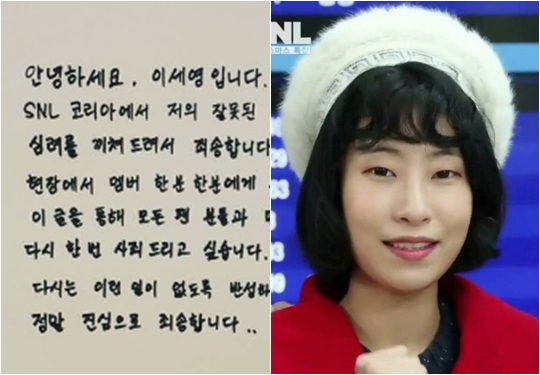 안녕하세요. 이세영입니다.
SNL 코리아에서 저의 잘못된
심려를 끼쳐드려서 죄송합니다
현장에서 멤버 한분한분에게
이 글을 통해 모든 팬 분들과
다시 한 번 사죄드리고 싶습니다.
다시는 이런 일이 없도록 반성하
정말 진심으로 죄송합니다..
NL